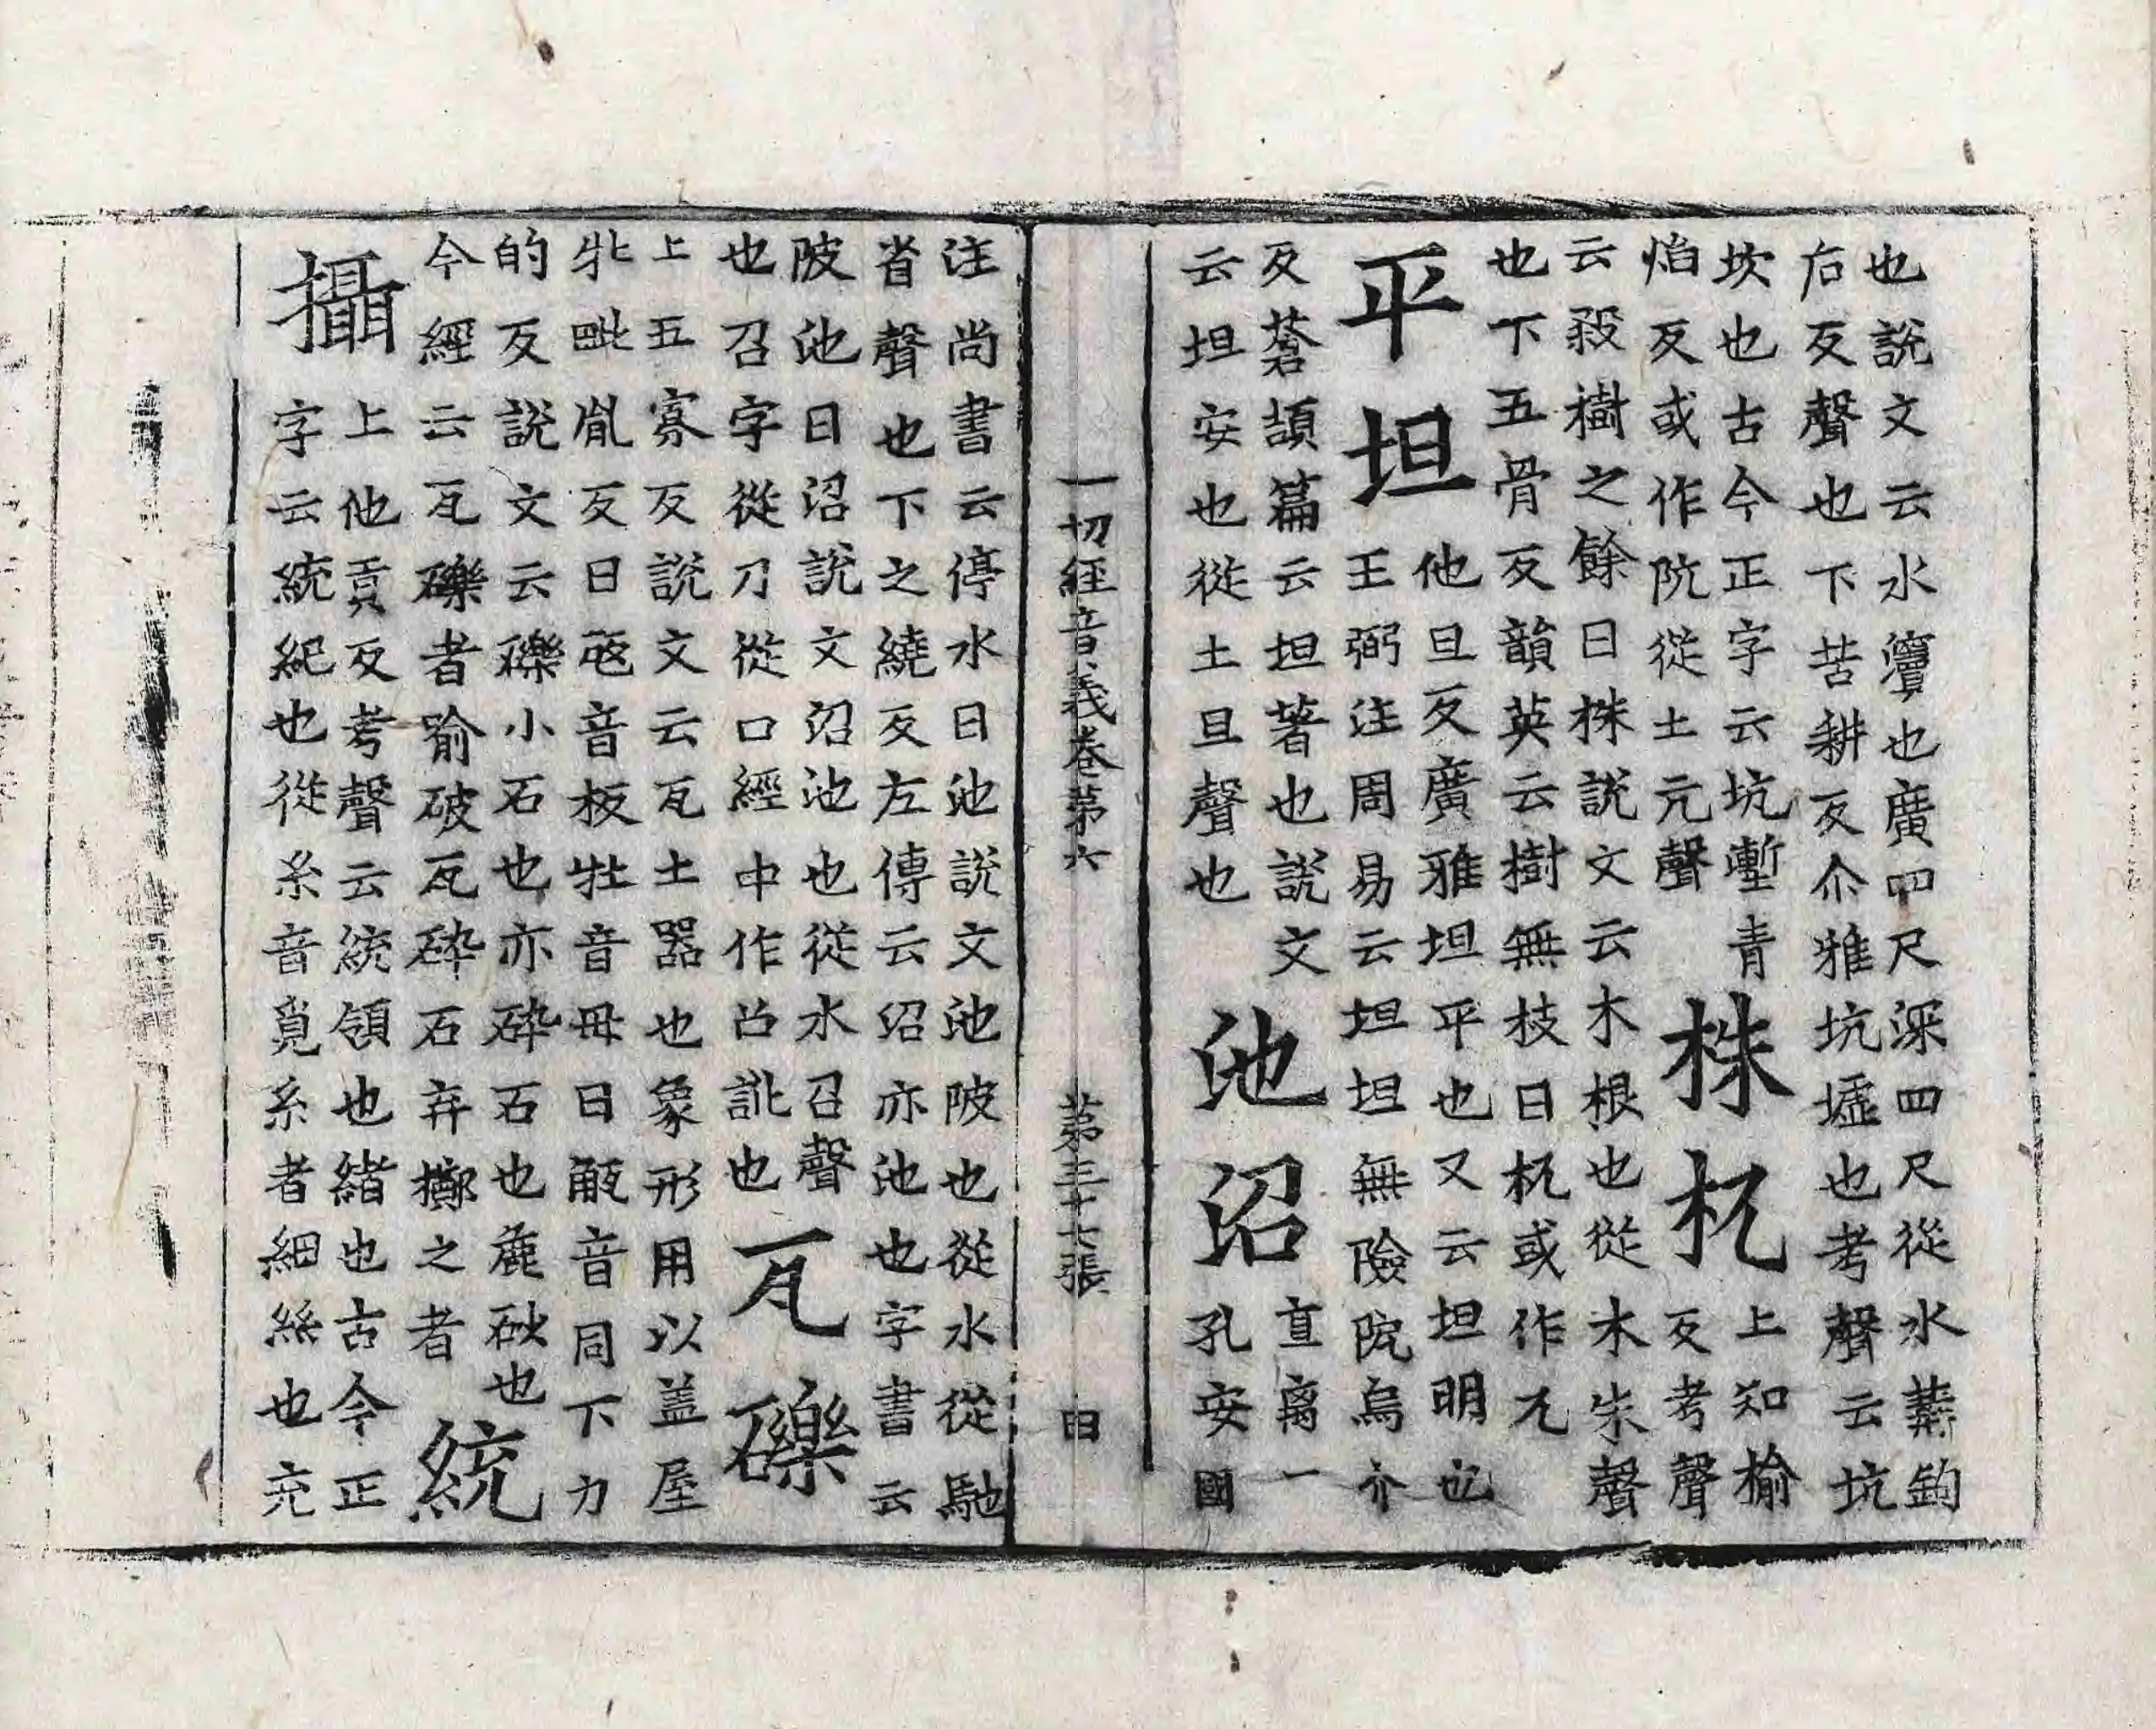 也說文云水瀆也廣四尺深四尺從水冓鉤
后反聲也下苦耕反尒雅坑墟也考聲云坑
坎也古今正字云坑壍青
焰反或作阬從土亢聲
株杌
上知榆
反考聲
云殺樹之餘曰株說文云木根也從木朱聲
也下五骨反韻英云樹無枝曰杌或作兀
平坦
他旦反廣雅坦平也又云坦明也
王弼注周易云坦坦無險阨烏介
反蒼頡篇云坦著也說文
云坦安也從土旦聲也
池沼
直离一
孔安國
一切經音義卷第六 第三十七張 田
注尚書云停水曰池說文池陂也從水從馳
省聲也下之繞反左傳云沼亦池也字書云
陂池曰沼說文沼池也從水召聲
也召字從刀從口經中作㕣訛也
瓦礫
上五寡反說文云瓦土器也象形用以蓋屋
牝毗胤反曰㼛音板牡音母曰㼧音同下力
的反說文云礫小石也亦碎石也麁砂也
今經云瓦礫者喻破瓦碎石弃擲之者
統攝
上他貢反考聲云統領也緒也古今正
字云統紀也從糸音覓糸者細絲也充